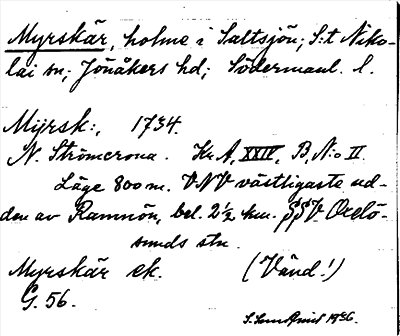 Myrskär, holme i Saltsjön; S:t Niko-
lai sn; Jönåkers hd; Södermanl. l.
Mijrsk:, 1734.
N. Strömcrona. Kr. A, XXIV, B, N:o II.
Läge 800 m. VNV västligaste ud-
den av Ramnön, bel. 2½ km. SSV. Oxelö-
sunds stn.
Myrskär ek. (Vänd!)
G. 56.
1936.